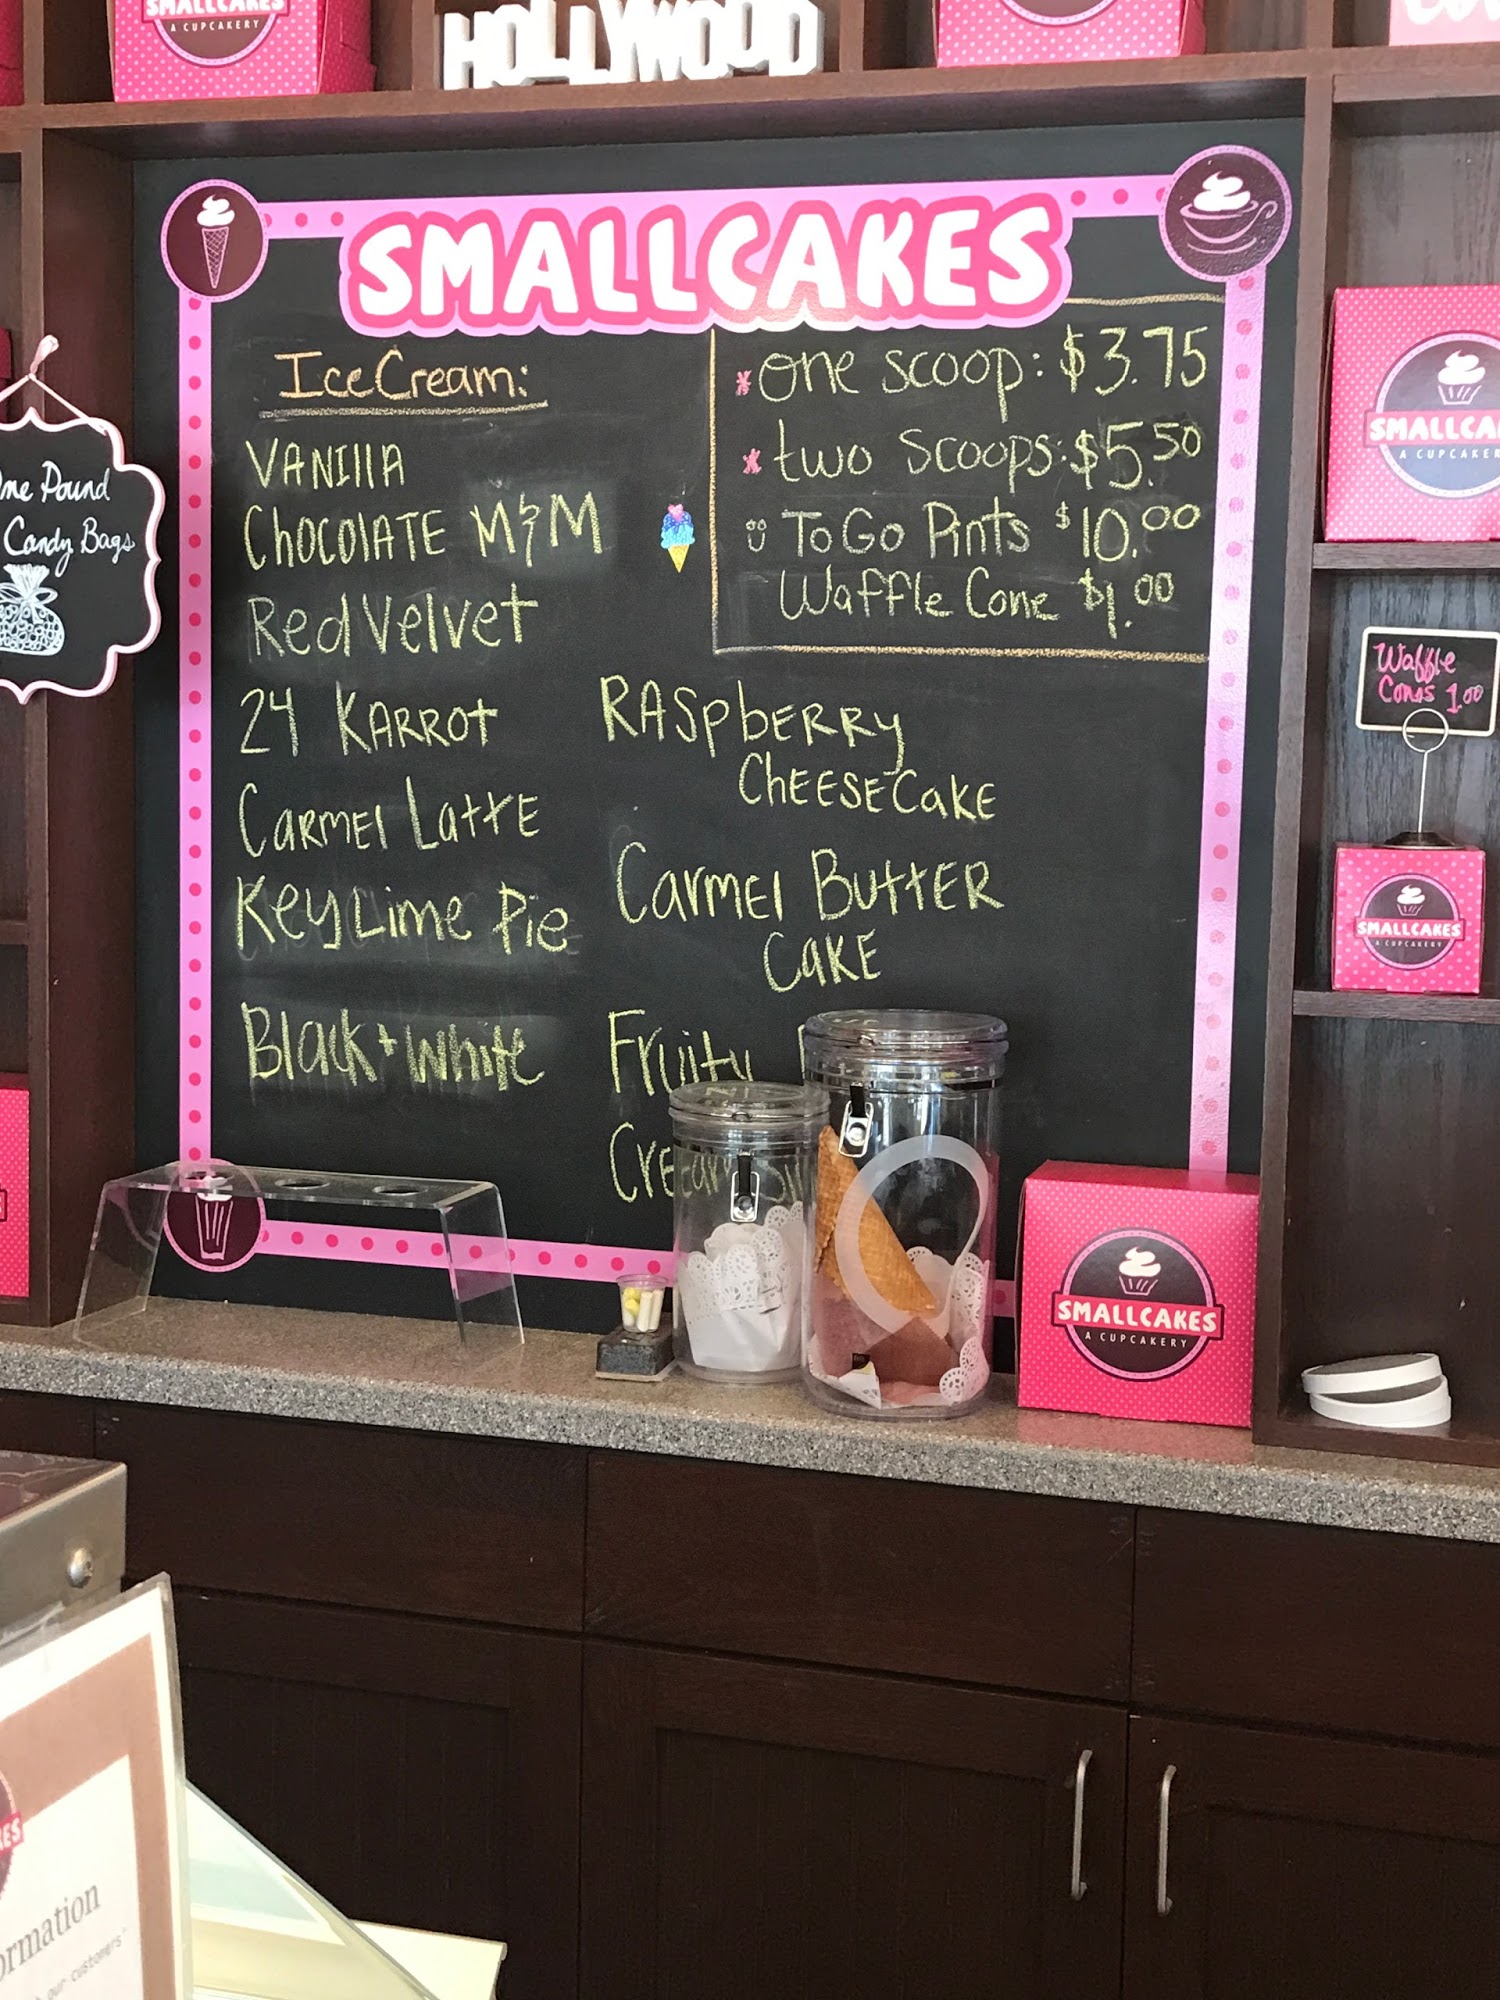 SMALLCAKES
A CUPCAKERY
HOLLYWOOD
SMALLCAKES
Ice Cream:
VANIllA
ChocolATE M&M
Red Velvet
24 KARROT
CARMEl LattE
Key Lime Pie
Black + White
* one scoop: $3.75
* two scoops: $5.50
To Go Pints $10.00
Waffle Cone $1.00
RASpbERRy
ChEESECakE
Carmel ButtER
CakE
Fruity
Pound
Candy Bags
Waffle
Cones 1.00
A CUPCAKERY
SMALLCAKES
A CUPCAKERY
SMALLCAKES
A CUPCAKERY
our customers'